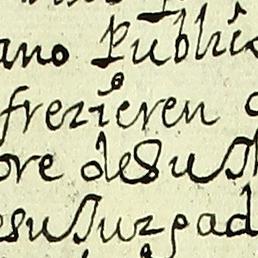 ano Publi
frezieren
ore de Su
esu Juzgad